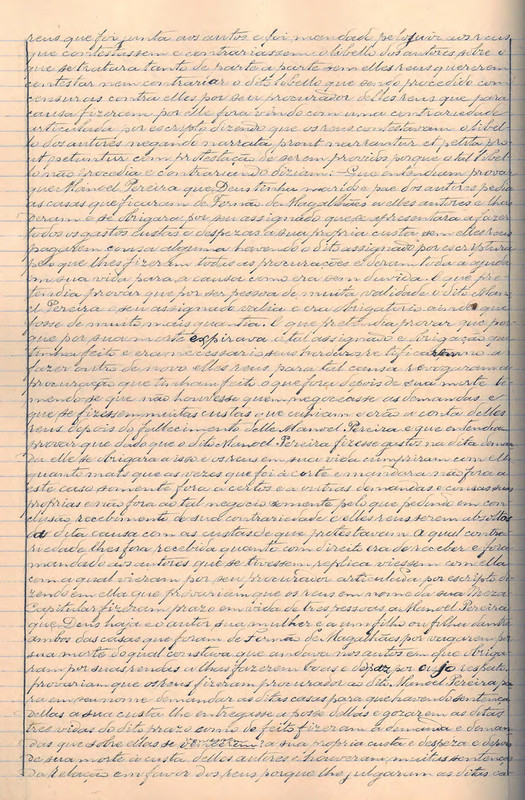 reus que foi junta aos autos e foi mandado pelo juiz aos reus
que contestassem e contrariassem o libello dos autores sobre o
que se tratara tanto de parte a parte sem elles reus quererem
contestar nem contrariar o dito libello que sendo procedido com
censuras contra elles por seu procurador delles reus que para
causa fizeram por elle fora vindo com uma contrariedade
articulada por escripto dizendo que os reus contestavam o libel-
lo dos autores negando narrata prout narrantur et petita pro-
ut petuntur com protestação de serem providos porque o tal libel-
lo não procedia e contrariando diziam: Que entendiam provar
que Manoel Pereira que Deus tenha marido e pae dos autores pedia
as casas que ficaram de Fernão de Magalhães a elles autores e lhas
deram e se obrigara por seu assignado que apresentara a fazer
todos os gastos custos e despezas á sua propria custa sem elles reus
pagarem cousa alguma havendo o dito assignado por escriptura
pelo que lhes fizeram todas as procurações e deram toda a ajuda
em sua vida para a causa como era sem duvida. E que pre-
tendia provar que por ser pessoa de muita validade o dito Mano-
el Pereira e seu assignado valia e era obrigatorio ainda que
fosse de muito mais quantia. E que pretendia provar que por-
que por sua morte expirava o tal assignado e obrigação que
tinha feito e era necessario seus herdeiros ratificarem no a
fazer outro de novo elles reus para tal causa revogaram a
procuração que tinham feito o que fora depois de sua morte te-
mendo se que não houvesse quem negoceasse as demandas e
que se fizessem muitas custas que cahiam e erão á conta delles
reus depois do fallecimento delle Manoel Pereira e que entendiam
provar que dado que o dito Manoel Pereira fizesse gastos na dita deman-
da elle se obrigara a isso e os reus em sua vida cumpriram com elle
quanto mais que as vezes que foi á corte e mandara não fora a
este caso somente fora a certos e a outras demandas e cousas suas
proprias e não fora ao tal negocio somente pelo que pediam em con-
clusão recebimento de sua contrariedade e elles reus serem absoltos
da dita causa com as custas de que protestavam a qual contra-
riedade lhes fora recebida quanto com direito era de receber e fora
mandado aos autores que se tivessem replica viessem com ella
com a qual vieram por seu procurador articulada por escripto di-
zendo em ella que provariam que os reus em nome da sua Meza
Capitular fizeram prazo em vida de tres pessoas a Manoel Pereira
que Deus haja e o autor sua mulher e a um filho ou filha dentre
ambos das casas que foram de Fernão de Magalhães por vagarem por
sua morte do qual constava que andava nos autos em que obriga-
ram por suas rendas a lhas fazerem boas e de paz por cujo respeito
provariam que os reus fizeram procurador a dito Manoel Pereira pa-
ra em seu nome demandar as ditas casas para que havendo sentença
dellas a sua custa lhe entregasse a posse dellas e gozarem as ditas
tres vidas do dito prazo como de feito fizeram a demanda e deman-
das que sobre ellas se moveram á sua propria custa e despeza e depois
de sua morte á custa delles autores e houveram muitas sentenças
da Relação em favor dos reus porque lhe julgaram as ditas ca-